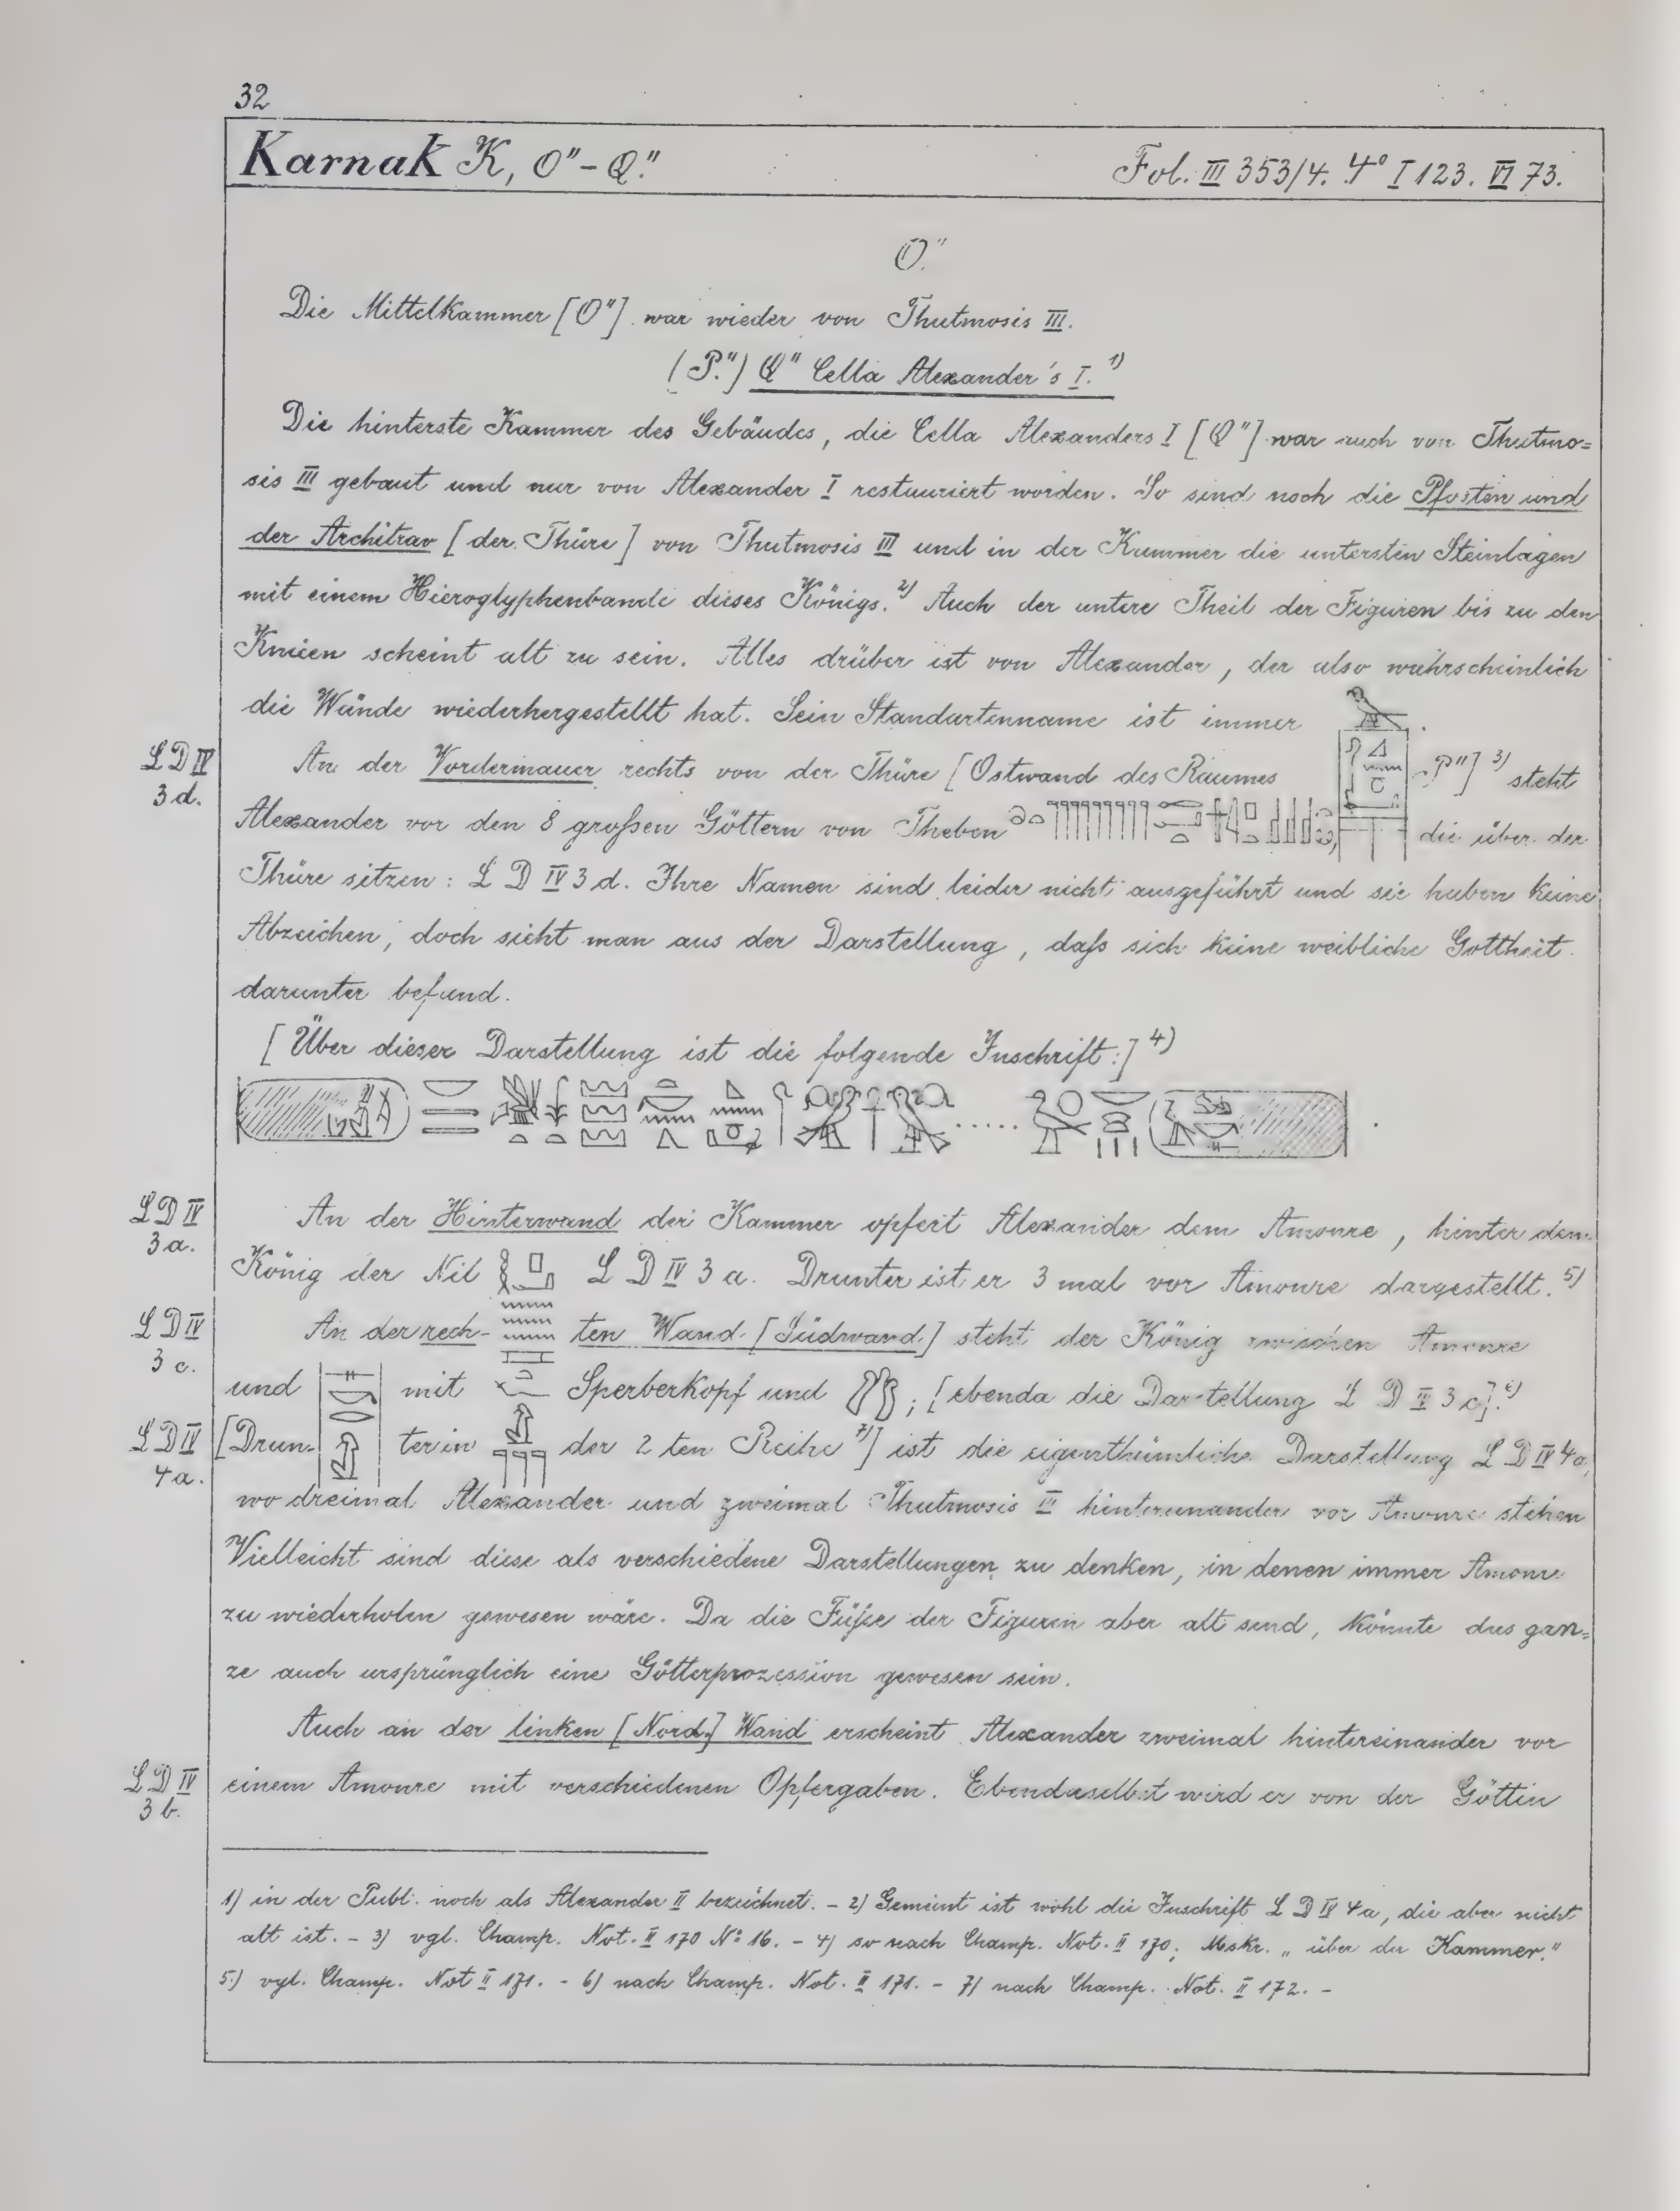 32
Karnak K, O"-Q." Fol. III 353/4. 4° I 123. VI 73.
O."
Die Mittelkammer [O"] war wieder von Thutmosis III.
(P.") Q" Cella Alexander's I. 1)
Die hinterste Kammer des Gebäudes, die Cella Alexanders I [Q"] war auch von Thutmo=
sis III gebaut und nur von Alexander I restauriert worden. So sind noch die Pfosten und
der Architrav [der Thüre] von Thutmosis III und in der Kammer die untersten Steinlagen
mit einem Hieroglyphenbande dieses Königs. 2) Auch der untere Theil der Figuren bis zu den
Knieen scheint alt zu sein. Alles drüber ist von Alexander, der also wahrscheinlich
die Wände wiederhergestellt hat. Sein Standartenname ist immer .
LD IV 3 d. An der Vordermauer rechts von der Thüre [Ostwand des Raumes P"] 3) steht
Alexander vor den 8 großen Göttern von Theben , die über der
Thüre sitzen: L D IV 3 d. Ihre Namen sind leider nicht ausgeführt und sie haben keine
Abzeichen, doch sieht man aus der Darstellung, daß sich keine weibliche Gottheit
darunter befand.
[Über dieser Darstellung ist die folgende Inschrift:] 4)
LD IV 3 a. An der Hinterwand der Kammer opfert Alexander dem Amonre, hinter dem
König der Nil L D IV 3 a. Drunter ist er 3 mal vor Amonre dargestellt. 5)
LD IV 3 c. An der rech- ten Wand [Südwand] steht der König zwischen Amonre
und mit Sperberkopf und ; [ebenda die Darstellung L D IV 3 c]. 6)
LD IV 4 a. [Drun- ter in der 2 ten Reihe 7)] ist die eigenthümliche Darstellung L D IV 4 a,
wo dreimal Alexander und zweimal Thutmosis III hintereinander vor Amonre stehen
Vielleicht sind diese als verschiedene Darstellungen zu denken, in denen immer Amonre
zu wiederholen gewesen wäre. Da die Füße der Figuren aber alt sind, könnte das gan=
ze auch ursprünglich eine Götterprozession gewesen sein.
Auch an der linken [Nord.] Wand erscheint Alexander zweimal hintereinander vor
LD IV 3 b. einem Amonre mit verschiedenen Opfergaben. Ebendaselbst wird er von der Göttin
1) in der Publ. noch als Alexander II bezeichnet. - 2) Gemeint ist wohl die Inschrift L D IV 4a, die aber nicht
alt ist. - 3) vgl. Champ. Not. II 170 No 16. - 4) so nach Champ. Not. II 170; Mskr. „über der Kammer."
5) vgl. Champ. Not II 171. - 6) nach Champ. Not. II 171. - 7) nach Champ. Not. II 172. -